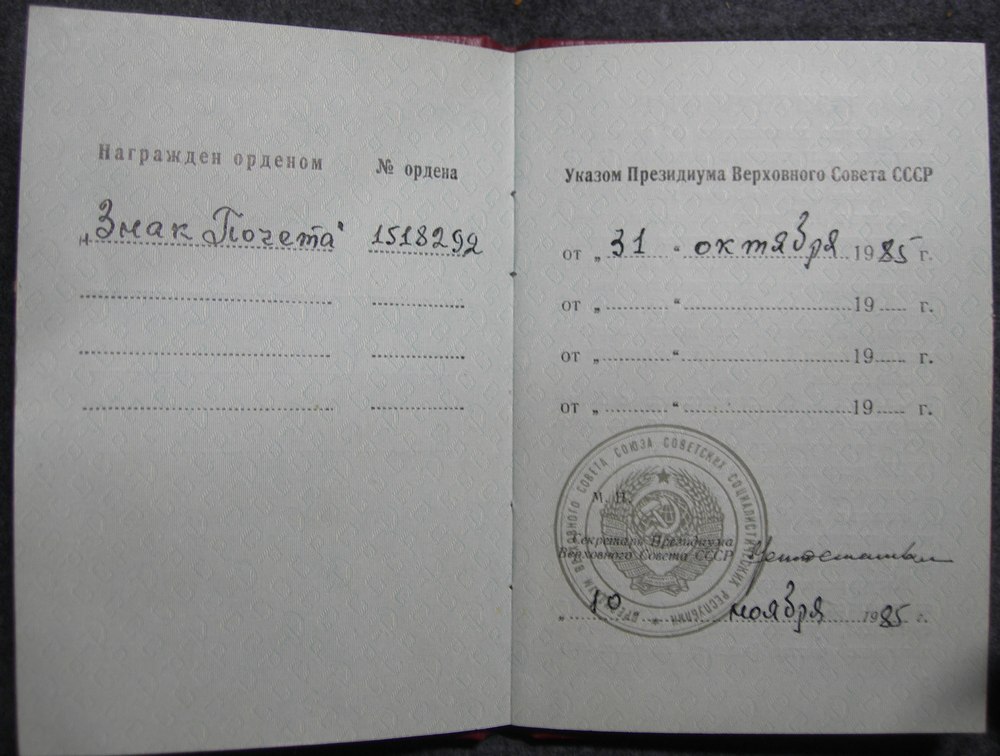 Награжден орденом
№ ордена
„Знак Почета“
1518292
Указом Президиума Верховного Совета СССР
от „31“ октября 1985 г.
от „ “ 19 г.
от „ “ 19 г.
от „ “ 19 г.
ПРЕЗИДИУМ ВЕРХОВНОГО СОВЕТА СОЮЗА СОВЕТСКИХ СОЦИАЛИСТИЧЕСКИХ РЕСПУБЛИК
М. П.
Секретарь Президиума
Верховного Совета СССР
„10 ноября 1985 г.